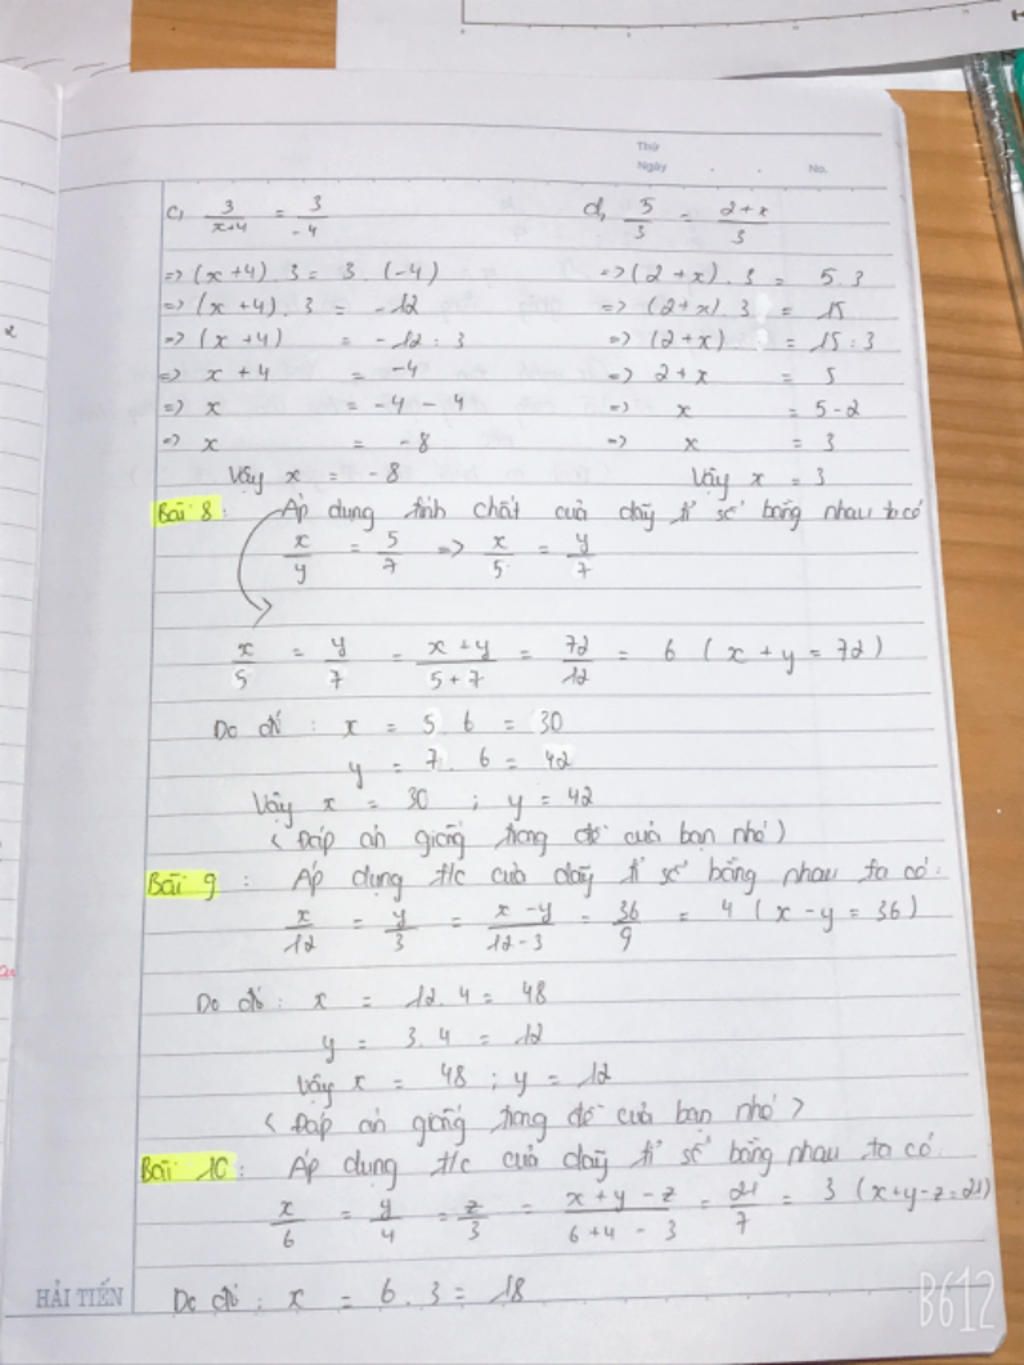 Thứ
Ngày . . No.
c, 3/(x+4) = 3/-4
=> (x+4).3 = 3.(-4)
=> (x+4).3 = -12
=> (x+4) = -12:3
=> x+4 = -4
=> x = -4-4
=> x = -8
Vậy x = -8
d, 5/3 = (2+x)/3
=> (2+x).3 = 5.3
=> (2+x).3 = 15
=> (2+x) = 15:3
=> 2+x = 5
=> x = 5-2
=> x = 3
Vậy x = 3
Bài 8: Áp dụng tính chất của dãy tỉ số bằng nhau ta có
x/y = 5/7 => x/5 = y/7
x/5 = y/7 = (x+y)/(5+7) = 72/12 = 6 (x+y=72)
Do đó: x = 5.6 = 30
y = 7.6 = 42
Vậy x = 30 ; y = 42
(Đáp án giống trong đề của bạn nhó)
Bài 9: Áp dụng t/c của dãy tỉ số bằng nhau ta có:
x/12 = y/3 = (x-y)/(12-3) = 36/9 = 4 (x-y=36)
Do đó: x = 12.4 = 48
y = 3.4 = 12
Vậy x = 48 ; y = 12
(Đáp án giống trong đề của bạn nhó)
Bài 10: Áp dụng t/c của dãy tỉ số bằng nhau ta có:
x/6 = y/4 = z/3 = (x+y-z)/(6+4-3) = 21/7 = 3 (x+y-z=21)
Do đó: x = 6.3 = 18
HẢI TIẾN
B612